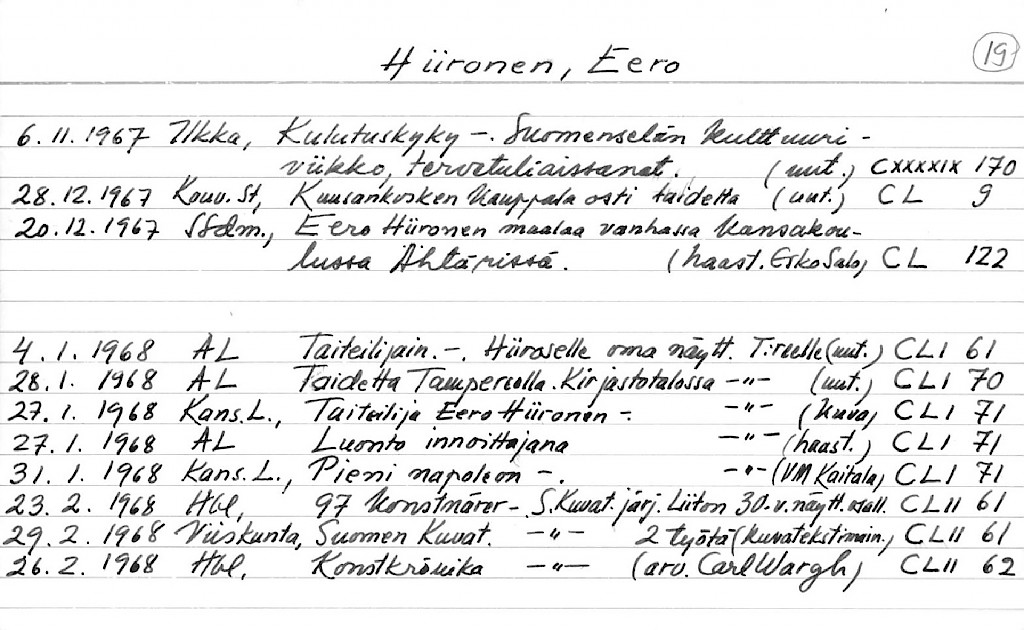 Hiironen, Eero
19
6.11.1967 Ilkka, Kulutuskyky -. Suomenselän kulttuuri-
viikko, tervetuliaissanat. (uut.) CXXXXIX 170
28.12.1967 Kouv. St, Kuusankosken kauppala osti taidetta (uut.) CL 9
20.12.1967 SSdm., Eero Hiironen maalaa vanhassa kansakou-
lussa Ähtärissä. (haast. Esko Salo) CL 122
4.1.1968 AL Taiteilijain. -. Hiiroselle oma näytt. T:reelle (uut.) CLI 61
28.1.1968 AL Taidetta Tampereella. Kirjastotalossa -"- (uut.) CLI 70
27.1.1968 Kans.L., Taiteilija Eero Hiironen -. -"- (kuva) CLI 71
27.1.1968 AL Luonto innoittajana -"- (haast.) CLI 71
31.1.1968 Kans.L., Pieni napoleon -. -"- (VM Kaitala) CLI 71
23.2.1968 Hbl, 97 konstnärer -. S.Kuvat.järj. Liiton 30-v.näytt. osall. CLII 61
29.2.1968 Viiskunta, Suomen Kuvat. -"- 2 työtä (kuvatekstimain.) CLII 61
26.2.1968 Hbl, Konstkrönika -"- (arv. Carl Wargh) CLII 62